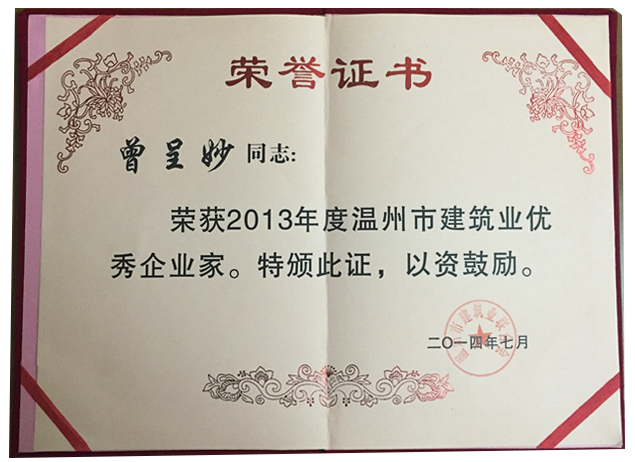 荣誉证书
曾呈妙同志:
荣获2013年度温州市建筑业优
秀企业家。特颁此证，以资鼓励。
温州市建筑业联合会
二〇一四年七月